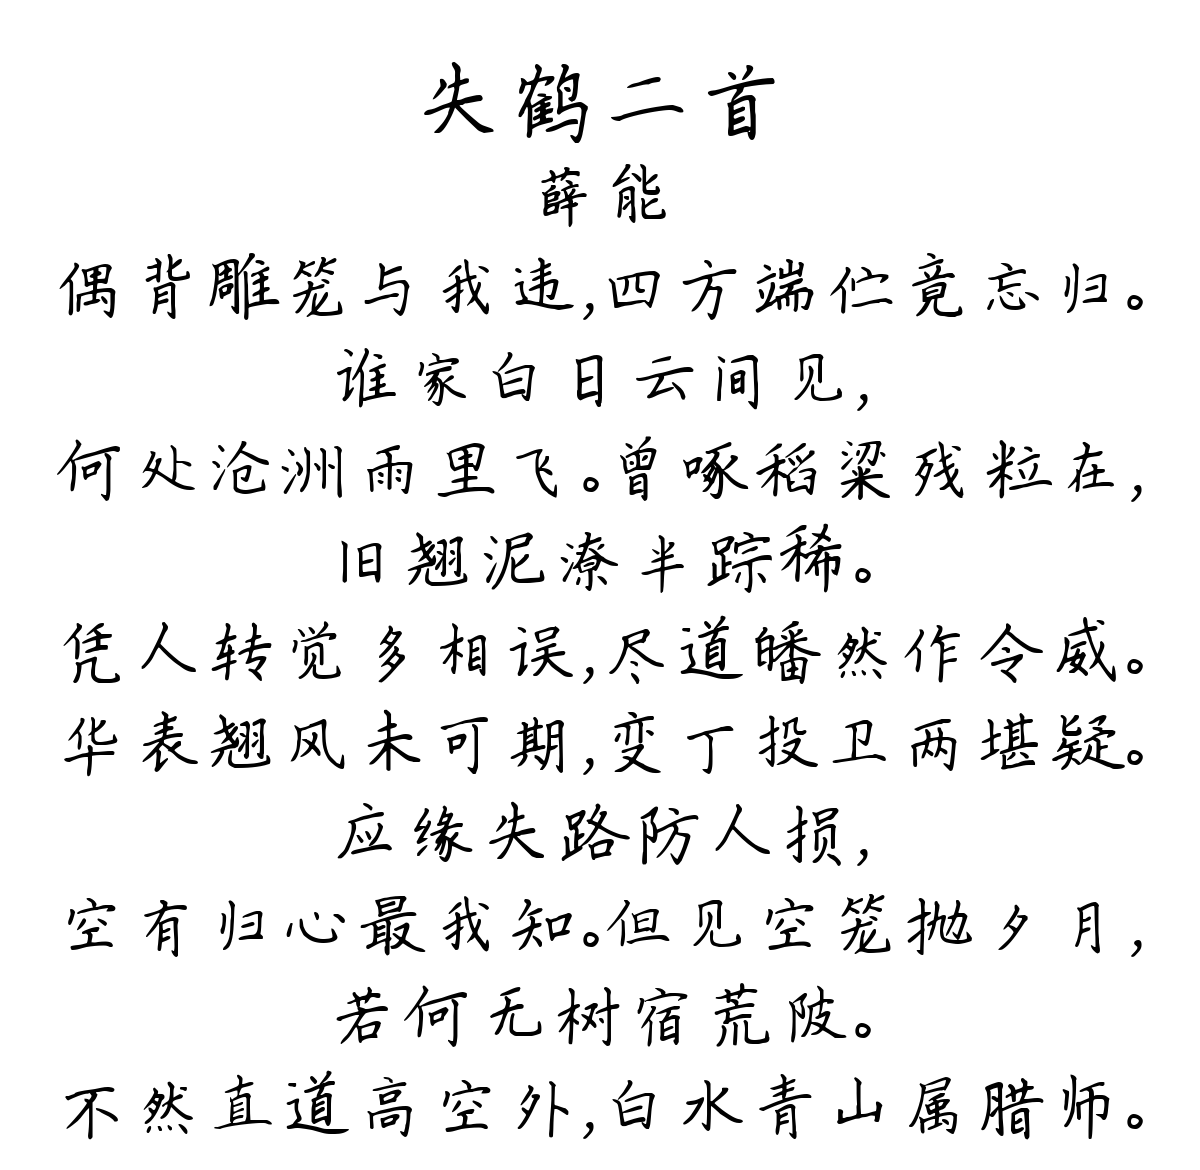 失鹤二首
薛能
偶背雕笼与我违,四方端伫竟忘归。
谁家白日云间见,
何处沧洲雨里飞。曾啄稻粱残粒在,
旧翘泥潦半踪稀。
凭人转觉多相误,尽道皤然作令威。
华表翘风未可期,变丁投卫两堪疑。
应缘失路防人损,
空有归心最我知。但见空笼抛夕月,
若何无树宿荒陂。
不然直道高空外,白水青山属腊师。